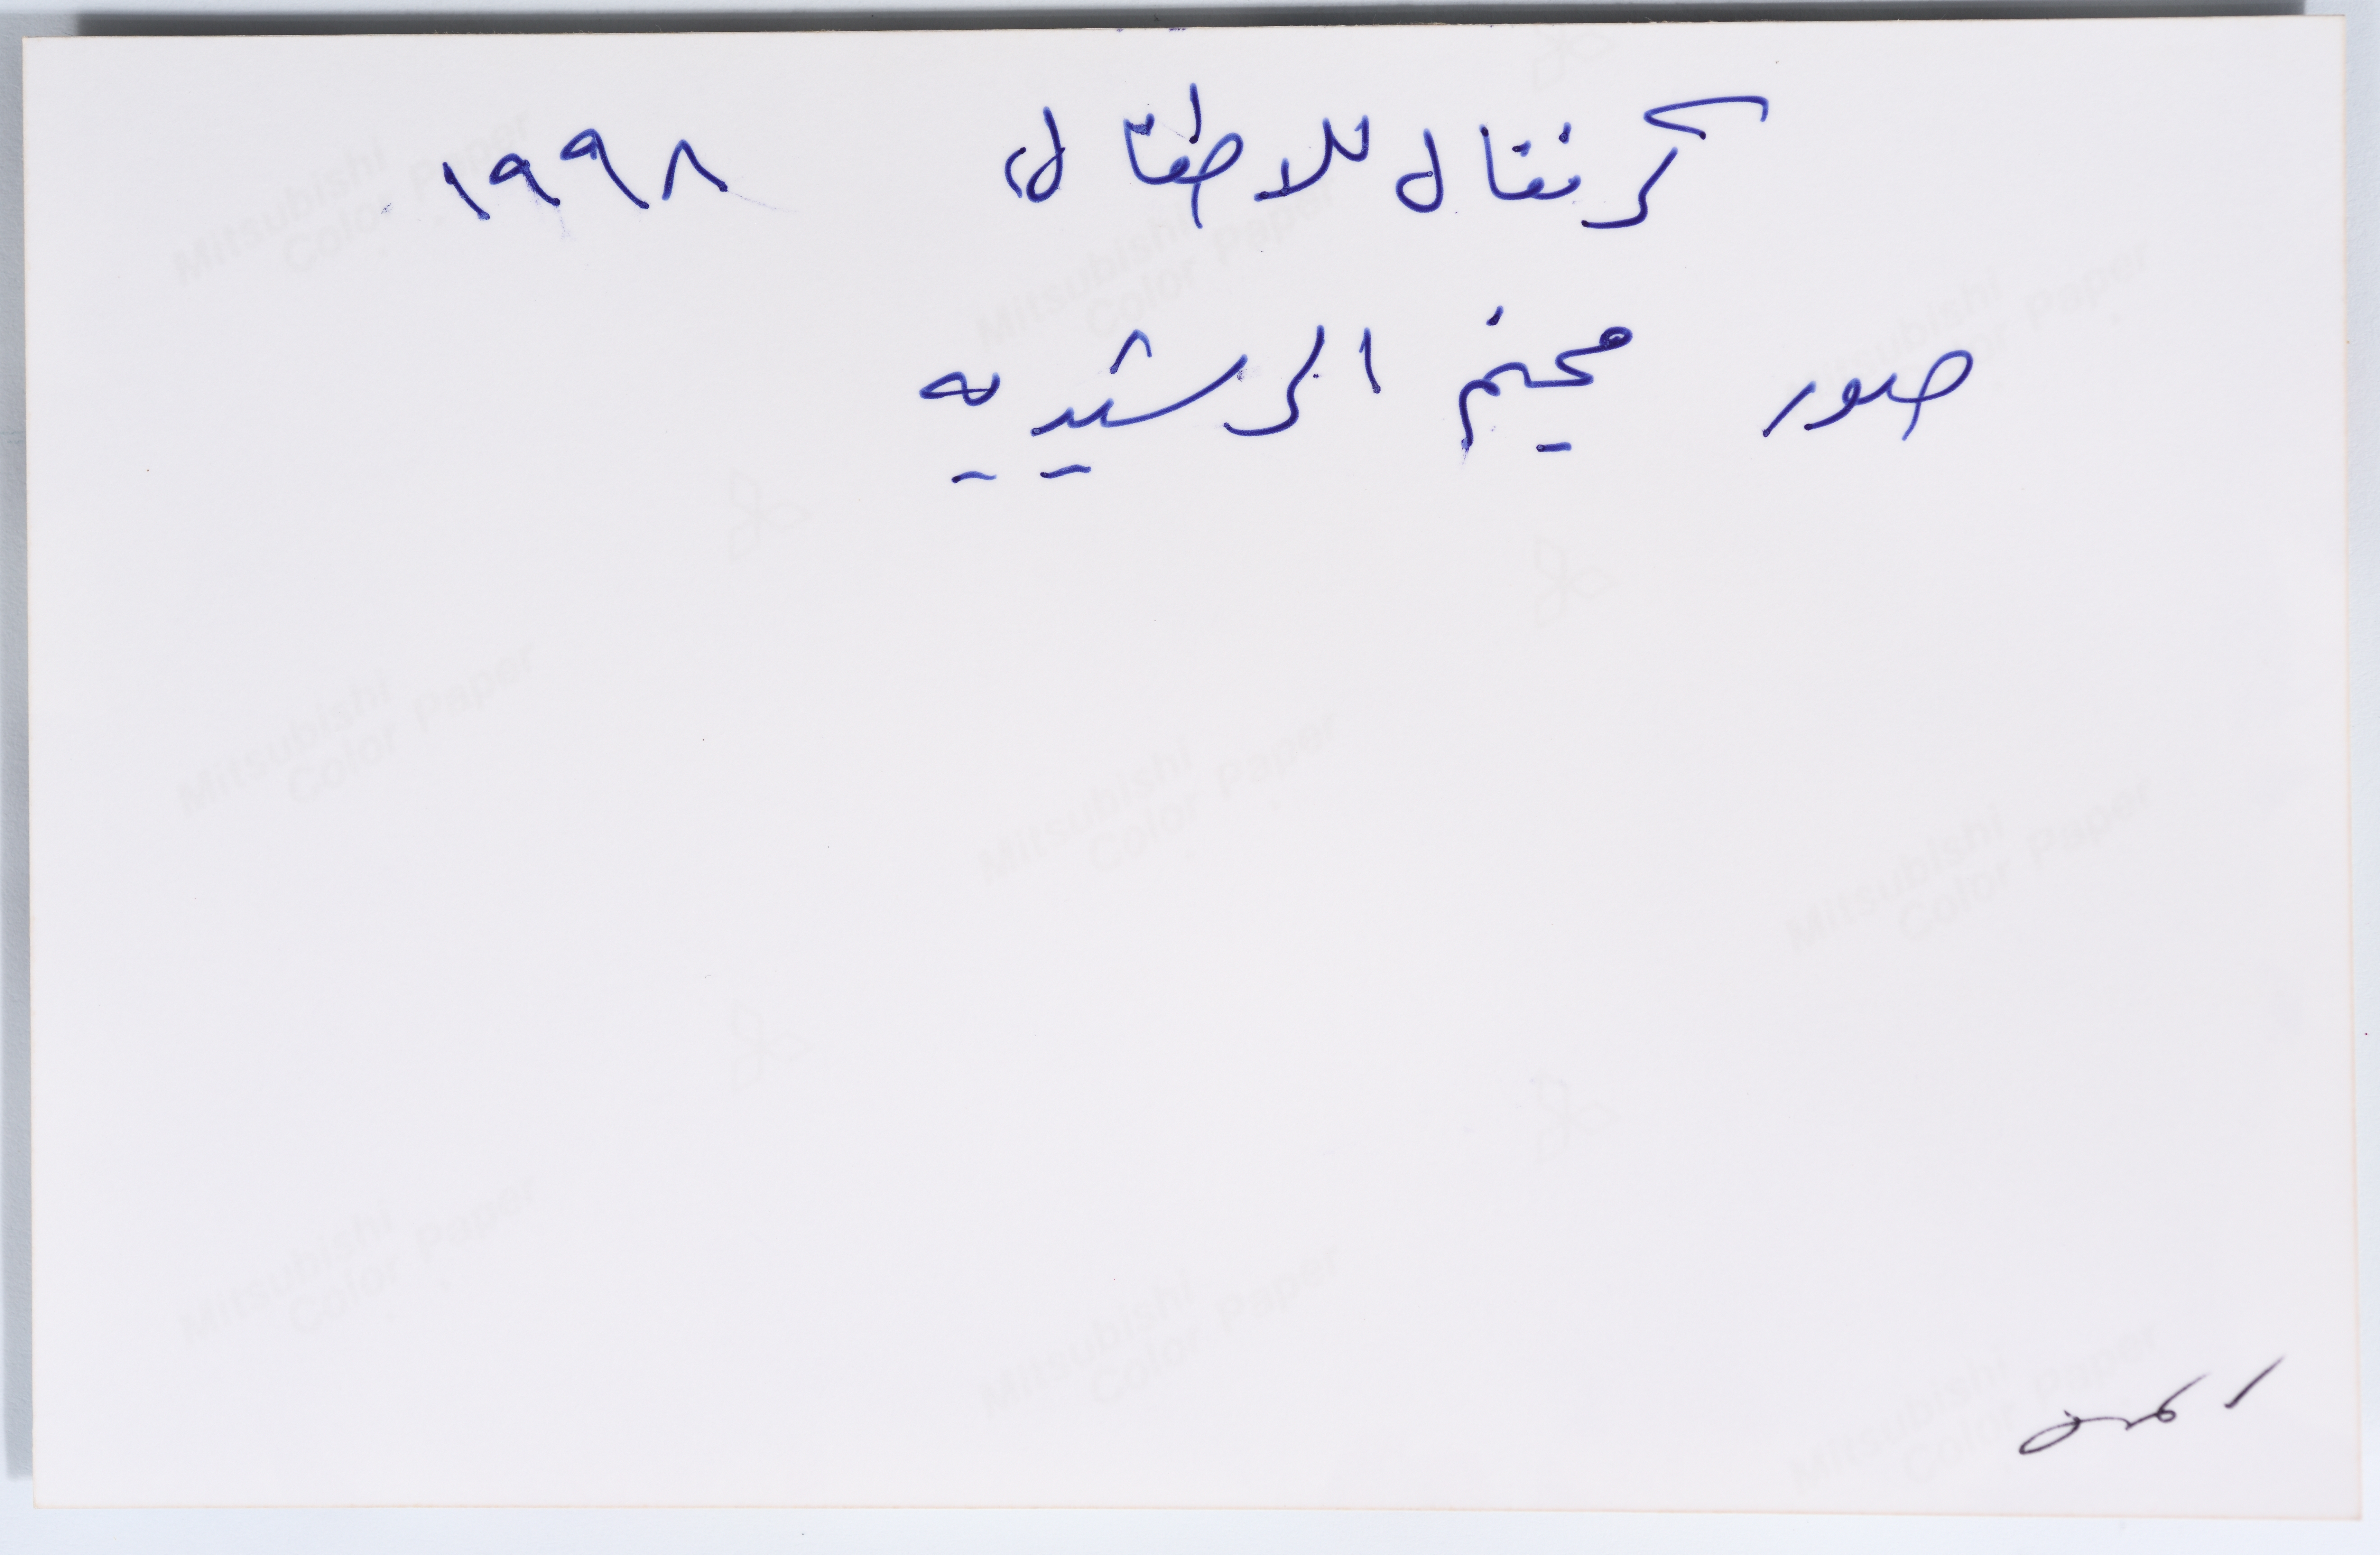 كرنفال للاطفال، ١٩٩٨
صور مخيم الرشيديه
Mitsubishi
Color Paper